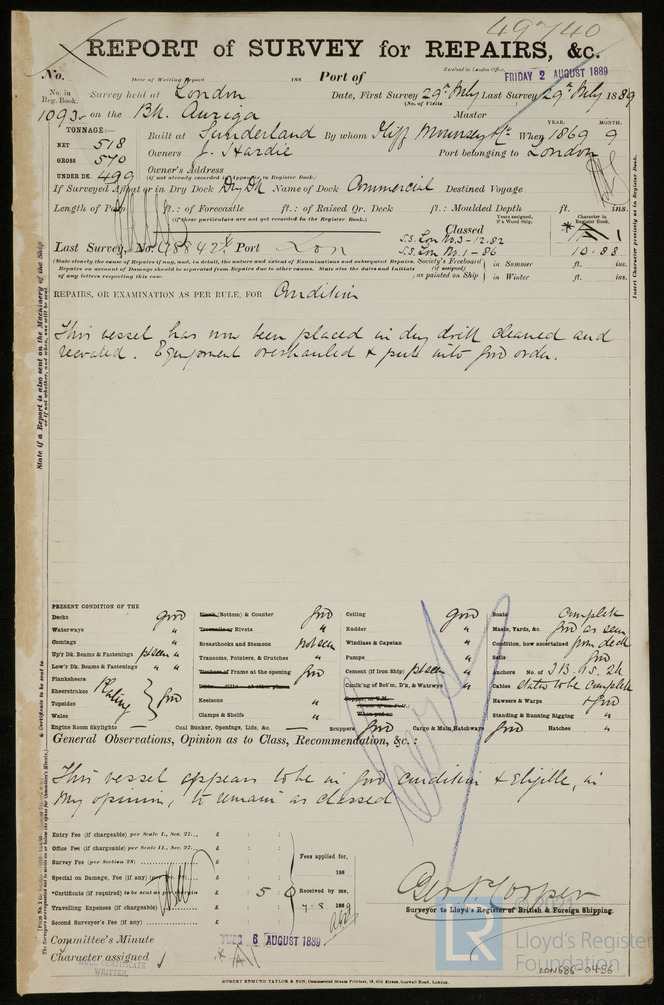 49740
REPORT of SURVEY for REPAIRS, &c.
No. Date of Writing Report 188 Port of Received in London Office, FRIDAY 2 AUGUST 1889
No. in Reg. Book. Survey held at London Date, First Survey 29th July Last Survey 29th July 1889
(No. of Visits
1093 on the Bk. Auriga Master
TONNAGE:— YEAR. MONTH.
NET 518 Built at Sunderland By whom When 1869 9
GROSS 570 Owners J. Hardie Port belonging to London
UNDER DK. 499 Owner's Address
(if not already recorded in Appendix to Register Book.)
If Surveyed Afloat or in Dry Dock Dry Dk Name of Dock Commercial Destined Voyage
Length of Poop ft.: of Forecastle ft.: of Raised Qr. Deck ft.: Moulded Depth ft. ins.
(if these particulars are not yet recorded in the Register Book.)
Years assigned, if a Wood Ship. Character in Register Book.
Classed
Last Survey, No. 48842 Port Lon
S.S. Lon No.3-12.82
S.S. Lon No.1-86 10.88
(State clearly the cause of Repairs if any, and, in detail, the nature and extent of Examinations and subsequent Repairs.
Repairs on account of Damage should be separated from Repairs due to other causes. State also the dates and Initials
of any letters respecting this case.
Society's Freeboard (if assigned) as painted on Ship in Summer ft. ins.
in Winter ft. ins.
Insert Character precisely as in Register Book.
REPAIRS, OR EXAMINATION AS PER RULE, FOR Condition
This vessel has now been placed in dry dock cleaned and
recoated. Equipment overhauled & put into good order.
State if a Report is also sent on the Machinery of the Ship
PRESENT CONDITION OF THE
Decks good
Waterways "
Comings "
Up'r Dk. Beams & Fastenings pt seen "
Low'r Dk. Beams & Fastenings " "
Planksheers
Sheerstrakes Plating good
Topsides
Wales
Engine Room Skylights —
Plank (Bottom) & Counter good
Treenails or Rivets "
Breasthooks and Stemson not seen
Transoms, Pointers, & Crutches "
Timbers of Frame at the opening good
Keelsons "
Clamps & Shelfs "
Coal Bunker, Openings, Lids, &c. —
Ceiling good
Rudder "
Windlass & Capstan "
Pumps "
Cement (if Iron Ship) pt seen
Caulking of Bot'm, D'k, & Waterways "
Scuppers good Cargo & Main Hatchways good Hatches "
Boats Complete
Masts, Yards, &c. good as seen
Condition, how ascertained from deck
Sails good
Anchors No. of 3 B. 1 S. 2 K
Cables Stated to be Complete
Hawsers & Warps & good
Standing & Running Rigging "
General Observations, Opinion as to Class, Recommendation, &c.:
This vessel appears to be in good condition & Eligible, in
my opinion, to remain as classed
Entry Fee (if chargeable) per Scale I., Sec. 27... £ : :
Office Fee (if chargeable) per Scale II., Sec. 27... £ : :
Survey Fee (per Section 28) £ : :
Special on Damage, Fee (if any) (per £ : :
*Certificate (if required) to be sent as per margin £ : 5 : 0
Travelling Expenses (if chargeable) £ : :
Second Surveyor's Fee (if any) £ : :
Fees applied for, 188
Received by me,
7-8 1889
Surveyor to Lloyd's Register of British & Foreign Shipping.
Committee's Minute TUES 6 AUGUST 1889
Character assigned
HULL CERTIFICATE
WRITTEN.
ROBERT EDMUND TAYLOR & SON, Commercial Steam Printers, 19, Old Street, Goswell Road, London.
© 2021
LR
Lloyd's Register
Foundation
LON686-0496